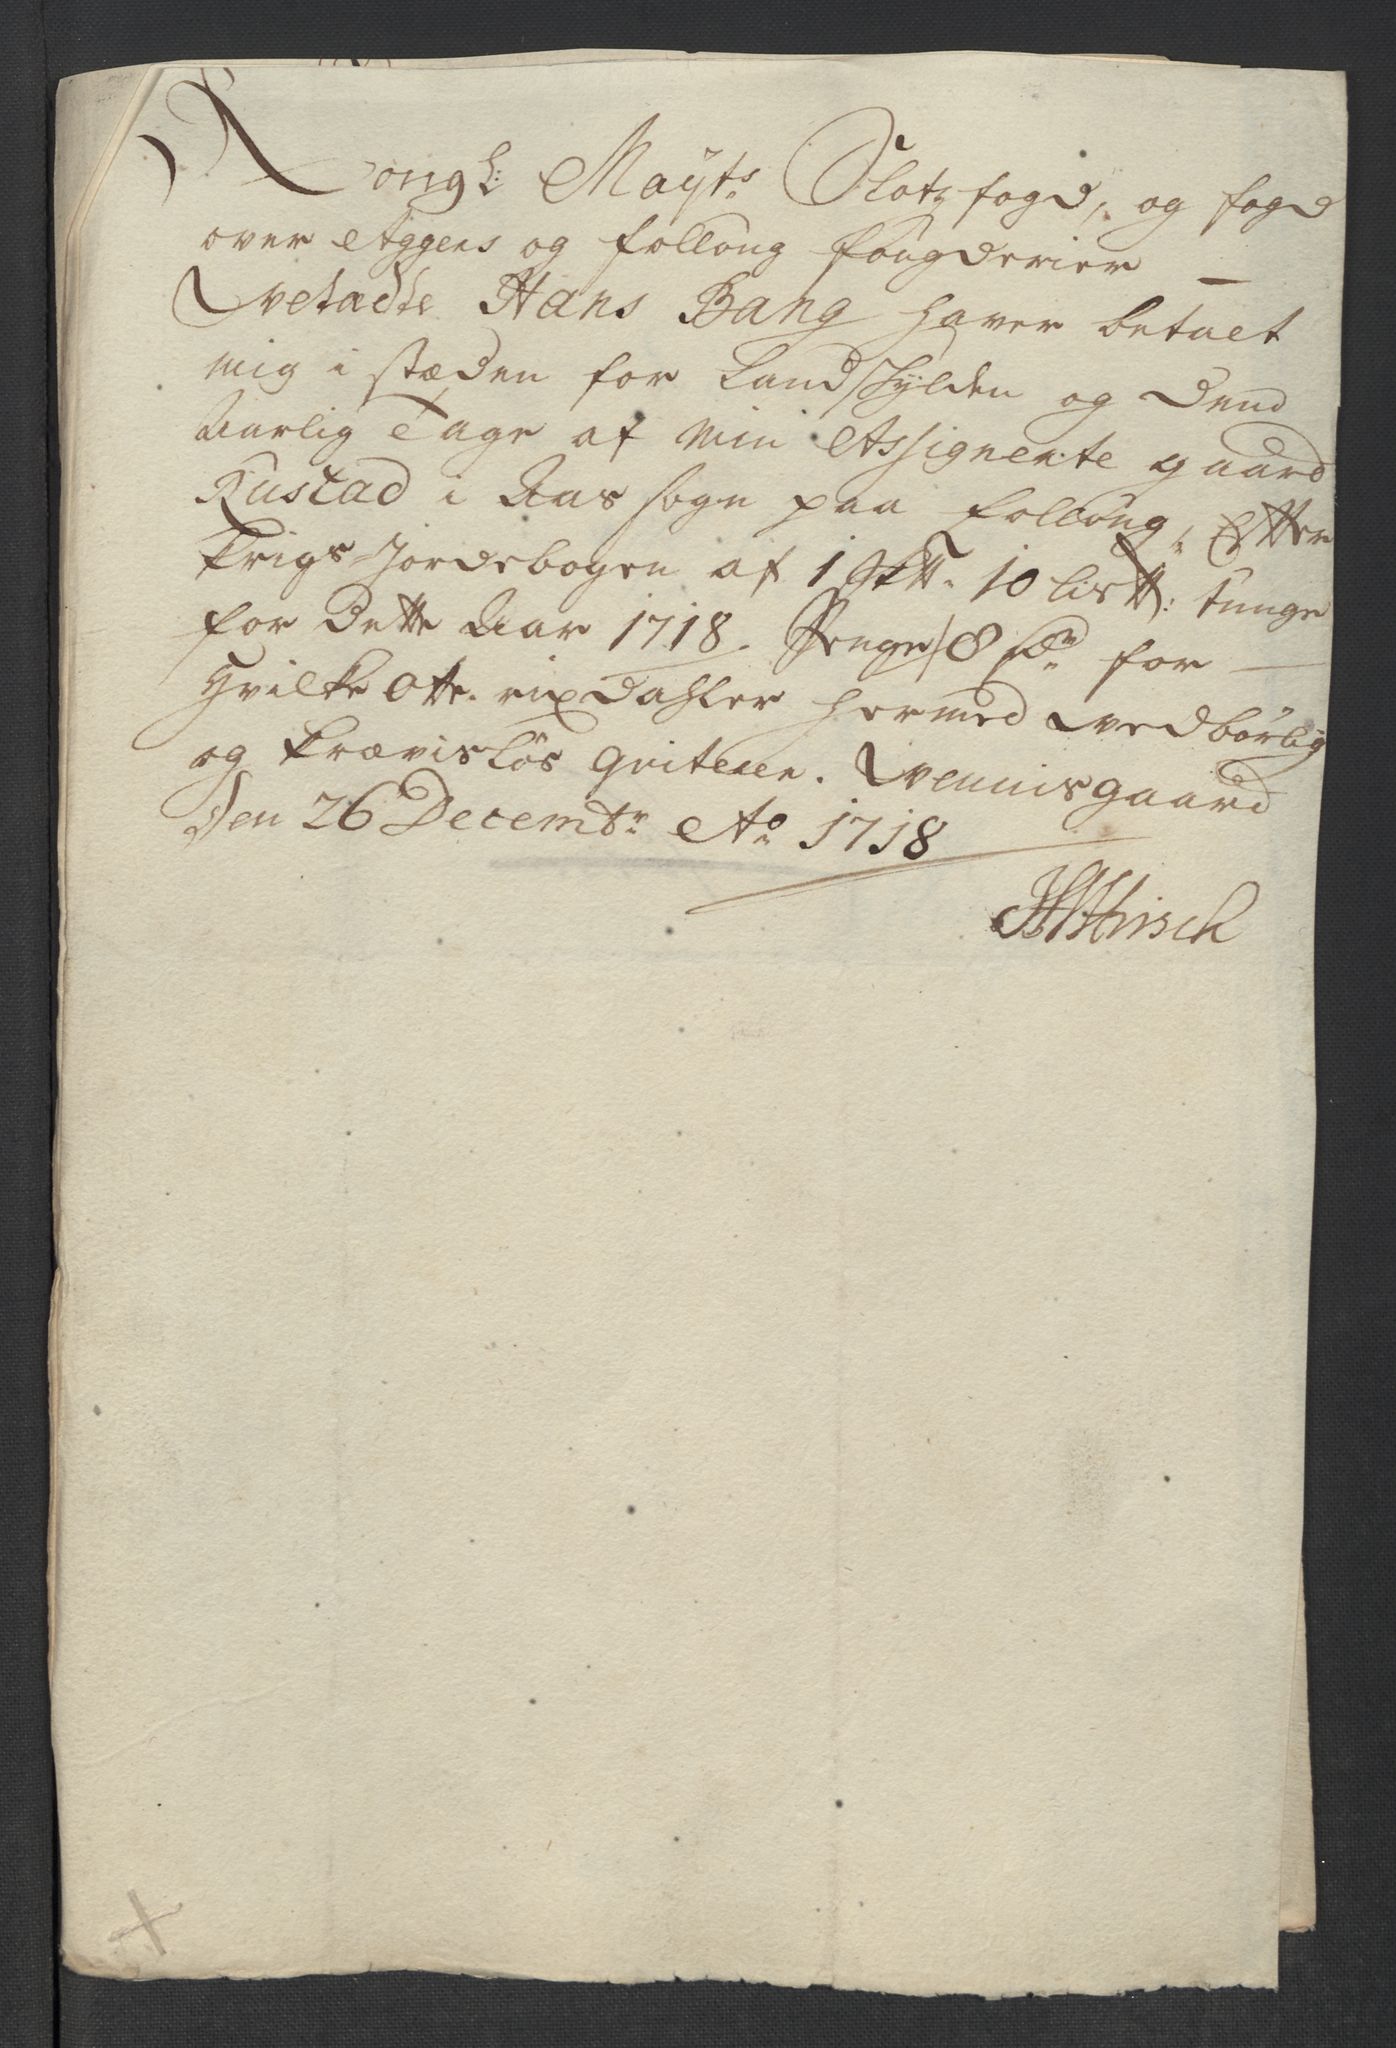 Kongl: Mayts Slotzfogd, og fogd
over Aggers og folloug fougderier —
Hans Bang haver betalt
mig i stæden for Landskylden og dend
Aarlig Tage af min Assignerte gaard
Rustad i Aas sogn paa folloug, Efter
Krigs-Jordebogen af 1 Sk℔. 10 lis℔: tunge
for dette Aar 1718. Penge 8 Rdr for —
Hvilke Otte rixdahler hermed vedbørlig
og Kravisløs qviterer. Wennisgaard
Den 26 Decembr Ao 1718